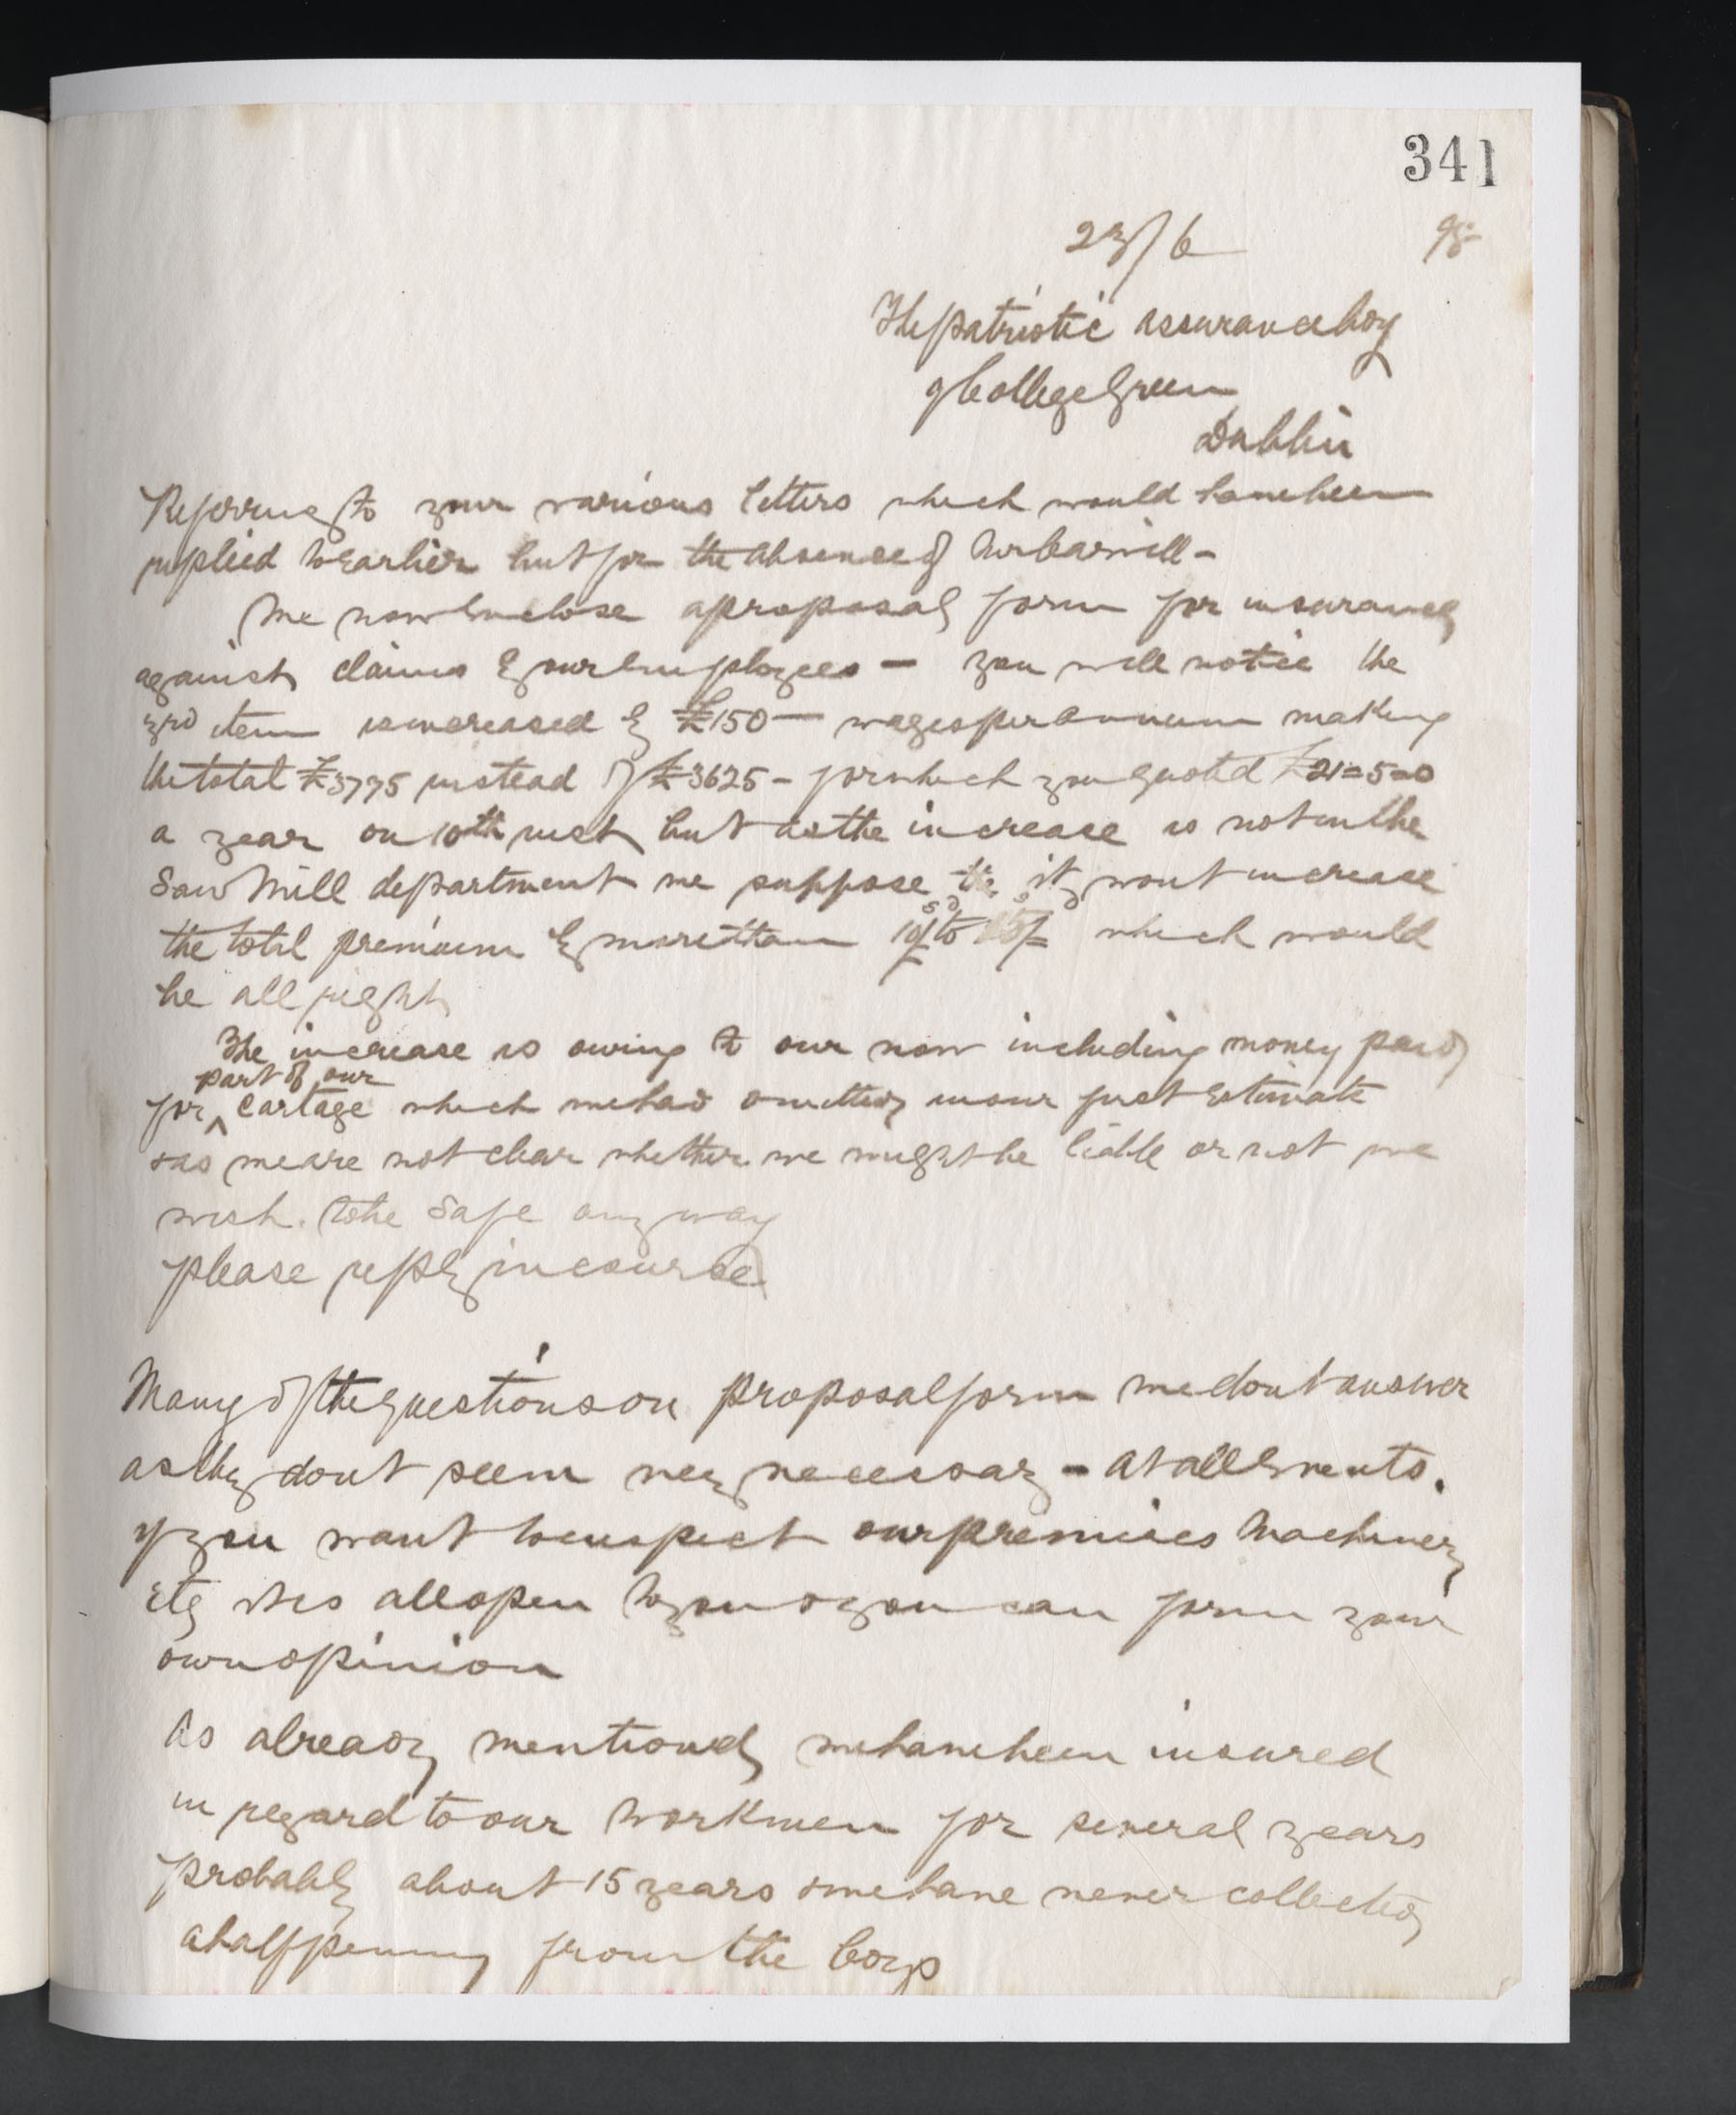 341
23/6 98
The patriotic assurance Coy
9 College Green
Dublin
Referring to your various letters which would have been
replied to Earlier but for the absence of
We now Enclose a proposal form for insurance
against claims by our Employees — you will notice the
3rd item is increased by £150 — wages per annum making
the total £3775 instead of £3625 - for which you quoted £21=5=0
a year on 10th inst but as the increase is not in the
Saw Mill department we suppose the it wont increase
the total premium by more than 10/ to 15/= which would
be all right
The increase is owing to our now including money paid
part of our
for ^ Cartage which we had omitted in our first Estimate
& as we are not clear whether we might be liable or not we
wish to be safe any way
please reply in course
Many of the questions on proposal form we dont answer
as they dont seem very necessary - At all Events.
if you want to inspect our premises Machinery
etc its all open to you & you can form your
own opinion
As already mentioned we have been insured
in regard to our workmen for several years
probably about 15 years & we have never collected
a halfpenny from the Coys